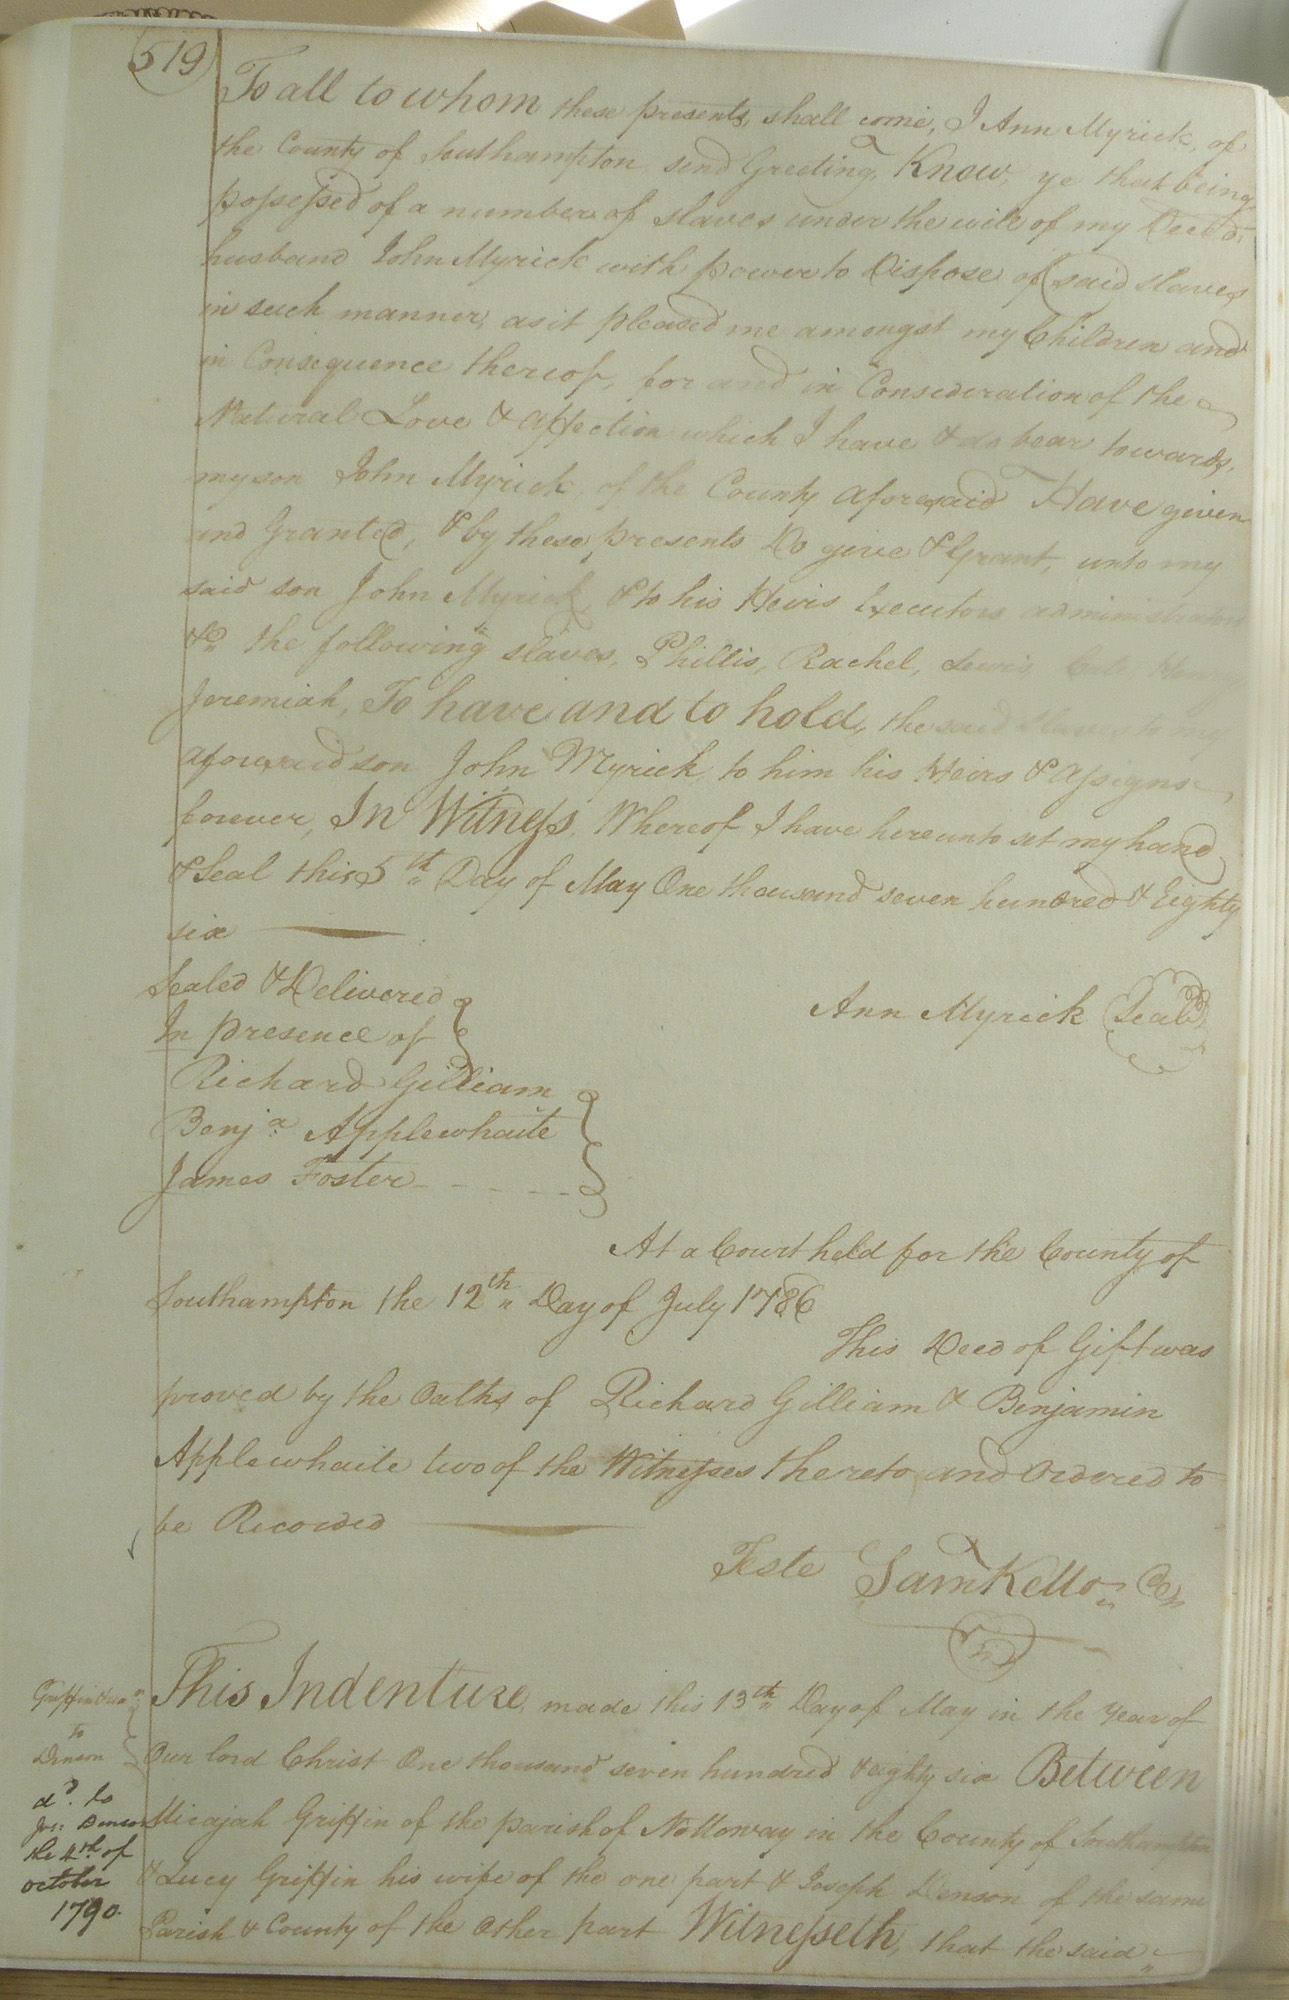 519
To all to whom these presents, shall come, I Ann Myrick, of
the County of Southampton send Greeting, Know, ye that being
possessed of a number of slaves under the will of my Deced.
husband John Myrick with power to Dispose of said slaves
in such manner, as it pleased me amongst my Children and
in Consequence thereof, for and in Consideration of the
Natural Love & affection which I have & do bear towards,
my son John Myrick, of the County aforesaid Have given
and Granted, & by these presents Do give & Grant, unto my
said son John Myrick, & to his Heirs Executors administrators
&c the following slaves, Phillis, Rachel, Lewis,
Jeremiah, To have and to hold, the said slaves to my
aforesaid son John Myrick, to him his Heirs & Assigns
forever, In Witness, Whereof I have hereunto set my hand
& Seal this 5th Day of May One thousand seven hundred & Eighty
six
Sealed & Delivered
In presence of
Ann Myrick Seal
Richard Gilliam
Benja. Applewhaite
James Foster
At a Court held for the County of
Southampton the 12th Day of July 1786
This Deed of Gift was
proved by the Oaths of Richard Gilliam & Benjamin
Applewhaite two of the Witnesses thereto and Ordered to
be Recorded
Teste Saml Kello
This Indenture, made this 13th Day of May in the Year of
Our lord Christ One thousand seven hundred & eighty six Between
Micajah Griffin of the parish of Nottoway in the County of Southampton
& Lucy Griffin his wife of the one part & Joseph Denson of the same
Parish & County of the Other part Witnesseth, that the said
Griffin
to
Denson
dd. to
Jos: Denson
the 4th of
october
1790.